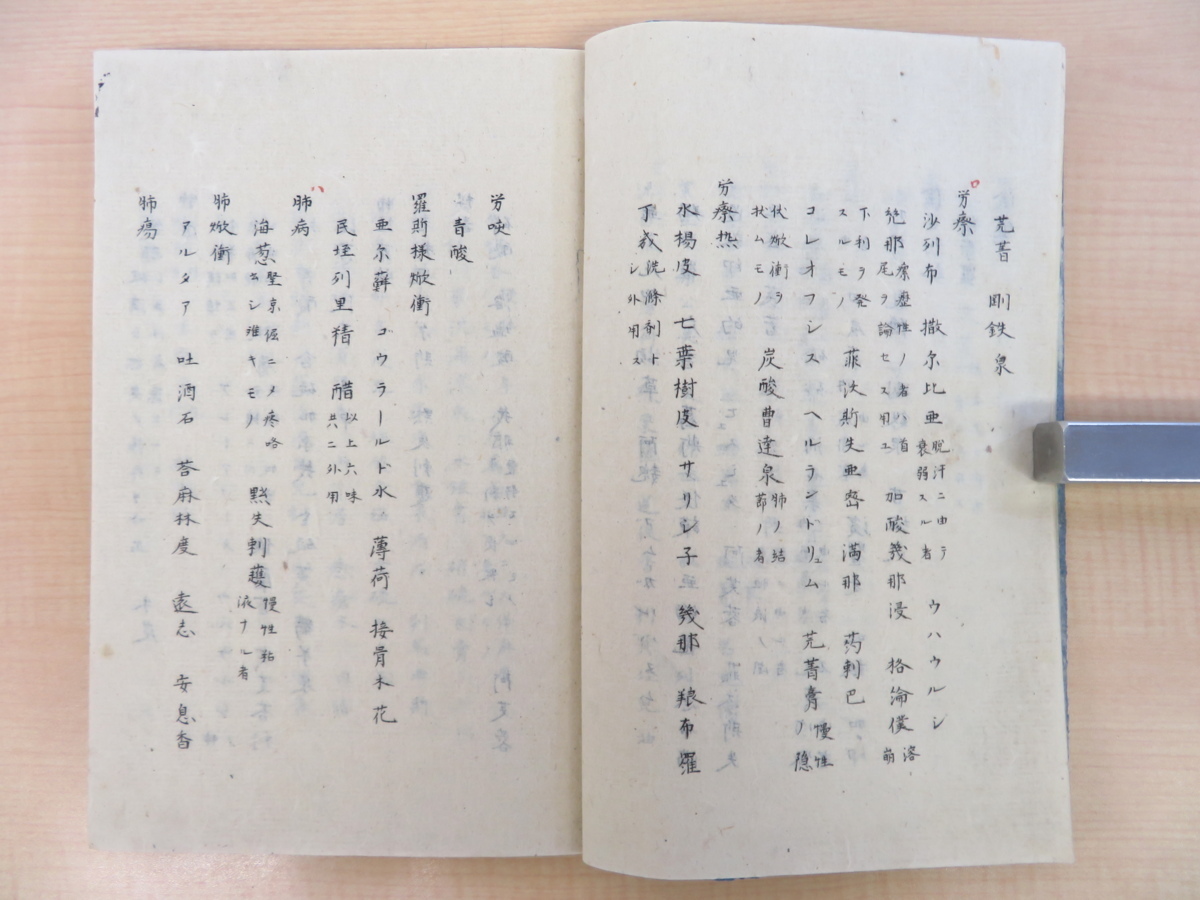 芫菁 剛鉄泉
労瘵
沙列布 撒尓比亜 脱汗ニ由テ衰弱スル者 ウハウルシ
幾那 瘵瘧性ノ者ハ首尾ヲ論セス用ユ 加酸幾那浸 格綸僕 溶崩
下利ヲ発スルモノ 菲沃斯失亜 密満那 葯刺巴
コレオフシスヘルラントリュム 芫菁膏 慢性ノ隠
伏焮衝ヲ状ムモノ 炭酸曹達泉 肺ノ結節ノ者
労瘵熱
水楊皮 七葉樹皮 サリシ子 幾那 羯布羅
丁幾 洗滌剤トシ外用ス
労咳
青酸
羅斯様焮衝
亜尓蘚 ゴウラールド水 薄荷 接骨木花
民垤列里精 醋 以上六味共ニ外用
肺病
海葱 堅京偓ニメ疼咯ムシ難キモノ 黙失刺蘊 慢性粘液ナル者
肺焮衝
アルタア 吐酒石 荅麻林度 遠志 安息香
肺瘍